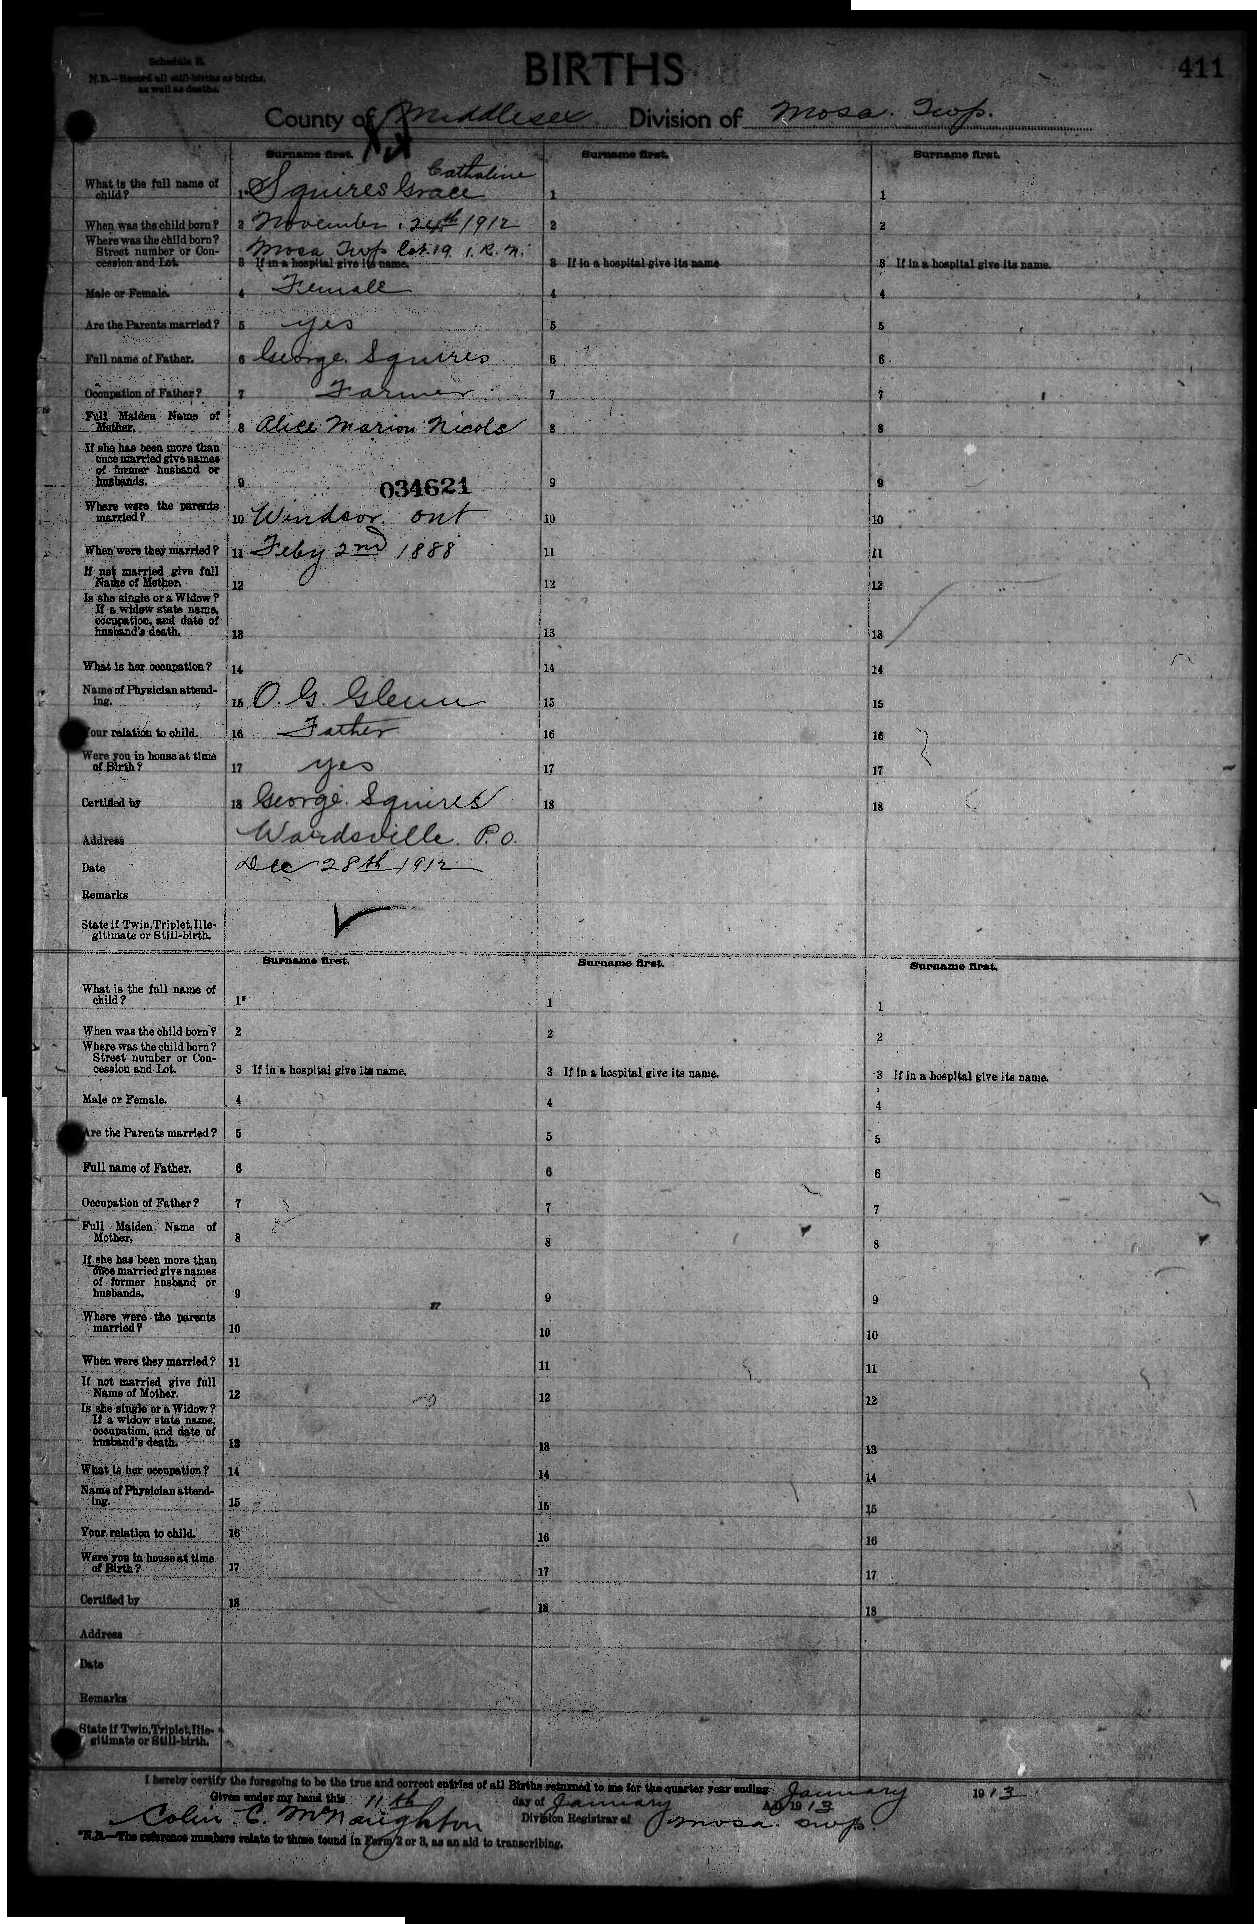 Schedule B.
N.B.—Record all still-births as births,
as well as deaths.
BIRTHS
411
County of Middlesex Division of Mosa. Twp.
Surname first. Surname first. Surname first.
Catherine
What is the full name of child? 1* Squires Grace 1 1
When was the child born? 2 November. 24th 1912 2 2
Where was the child born? Street number or Concession and Lot. Mosa Twp Lot. 19 1. R. N.
3 If in a hospital give its name. 3 If in a hospital give its name 3 If in a hospital give its name.
Male or Female. 4 Female 4 4
Are the Parents married? 5 yes 5 5
Full name of Father. 6 George. Squires 6 6
Occupation of Father? 7 Farmer 7 7
Full Maiden Name of Mother. 8 Alice Marion Nicols 8 8
If she has been more than once married give names of former husband or husbands. 9 9 9
034621
Where were the parents married? 10 Windsor. Ont 10 10
When were they married? 11 Feby 2nd 1888 11 11
If not married give full Name of Mother. 12 12 12
Is she single or a Widow? If a widow state name, occupation, and date of husband's death. 13 13 13
What is her occupation? 14 14 14
Name of Physician attending. 15 O. G. Glenn 15 15
Your relation to child. 16 Father 16 16
Were you in house at time of Birth? 17 yes 17 17
Certified by 18 George. Squires 18 18
Address Wardsville. P.O.
Date Dec 28th 1912
Remarks
State if Twin, Triplet, Illegitimate or Still-birth.
Surname first. Surname first. Surname first.
What is the full name of child? 1* 1 1
When was the child born? 2 2 2
Where was the child born? Street number or Concession and Lot. 3 If in a hospital give its name. 3 If in a hospital give its name. 3 If in a hospital give its name.
Male or Female. 4 4 4
Are the Parents married? 5 5 5
Full name of Father. 6 6 6
Occupation of Father? 7 7 7
Full Maiden Name of Mother. 8 8 8
If she has been more than once married give names of former husband or husbands. 9 9 9
Where were the parents married? 10 10 10
When were they married? 11 11 11
If not married give full Name of Mother. 12 12 12
Is she single or a Widow? If a widow state name, occupation, and date of husband's death. 13 13 13
What is her occupation? 14 14 14
Name of Physician attending. 15 15 15
Your relation to child. 16 16 16
Were you in house at time of Birth? 17 17 17
Certified by 18 18 18
Address
Date
Remarks
State if Twin, Triplet, Illegitimate or Still-birth.
I hereby certify the foregoing to be the true and correct entries of all Births returned to me for the quarter year ending January 1913
Given under my hand this 11th day of January A.D. 1913
Colin C. McNaughton Division Registrar of Mosa. Twp.
*N.B.—The reference numbers relate to those found in Form 2 or 3, as an aid to transcribing.